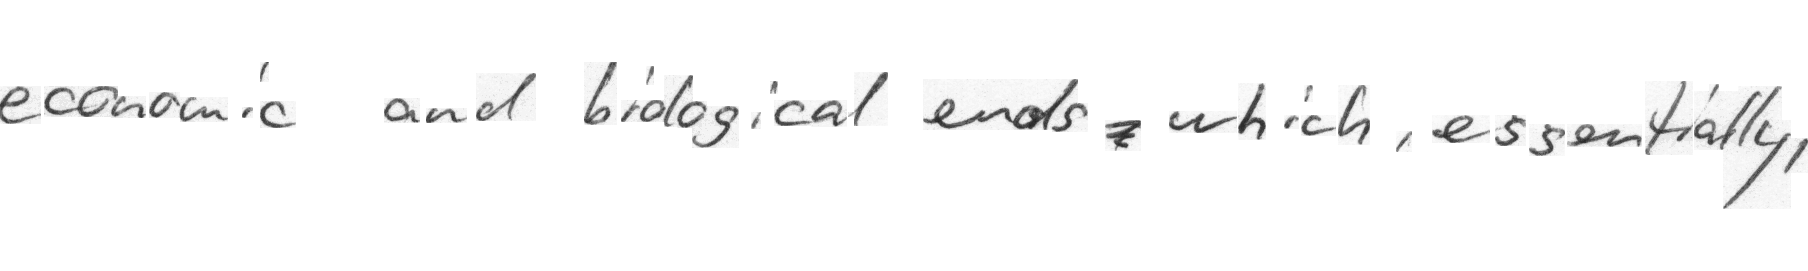 economic and biological ends - which, essentially,